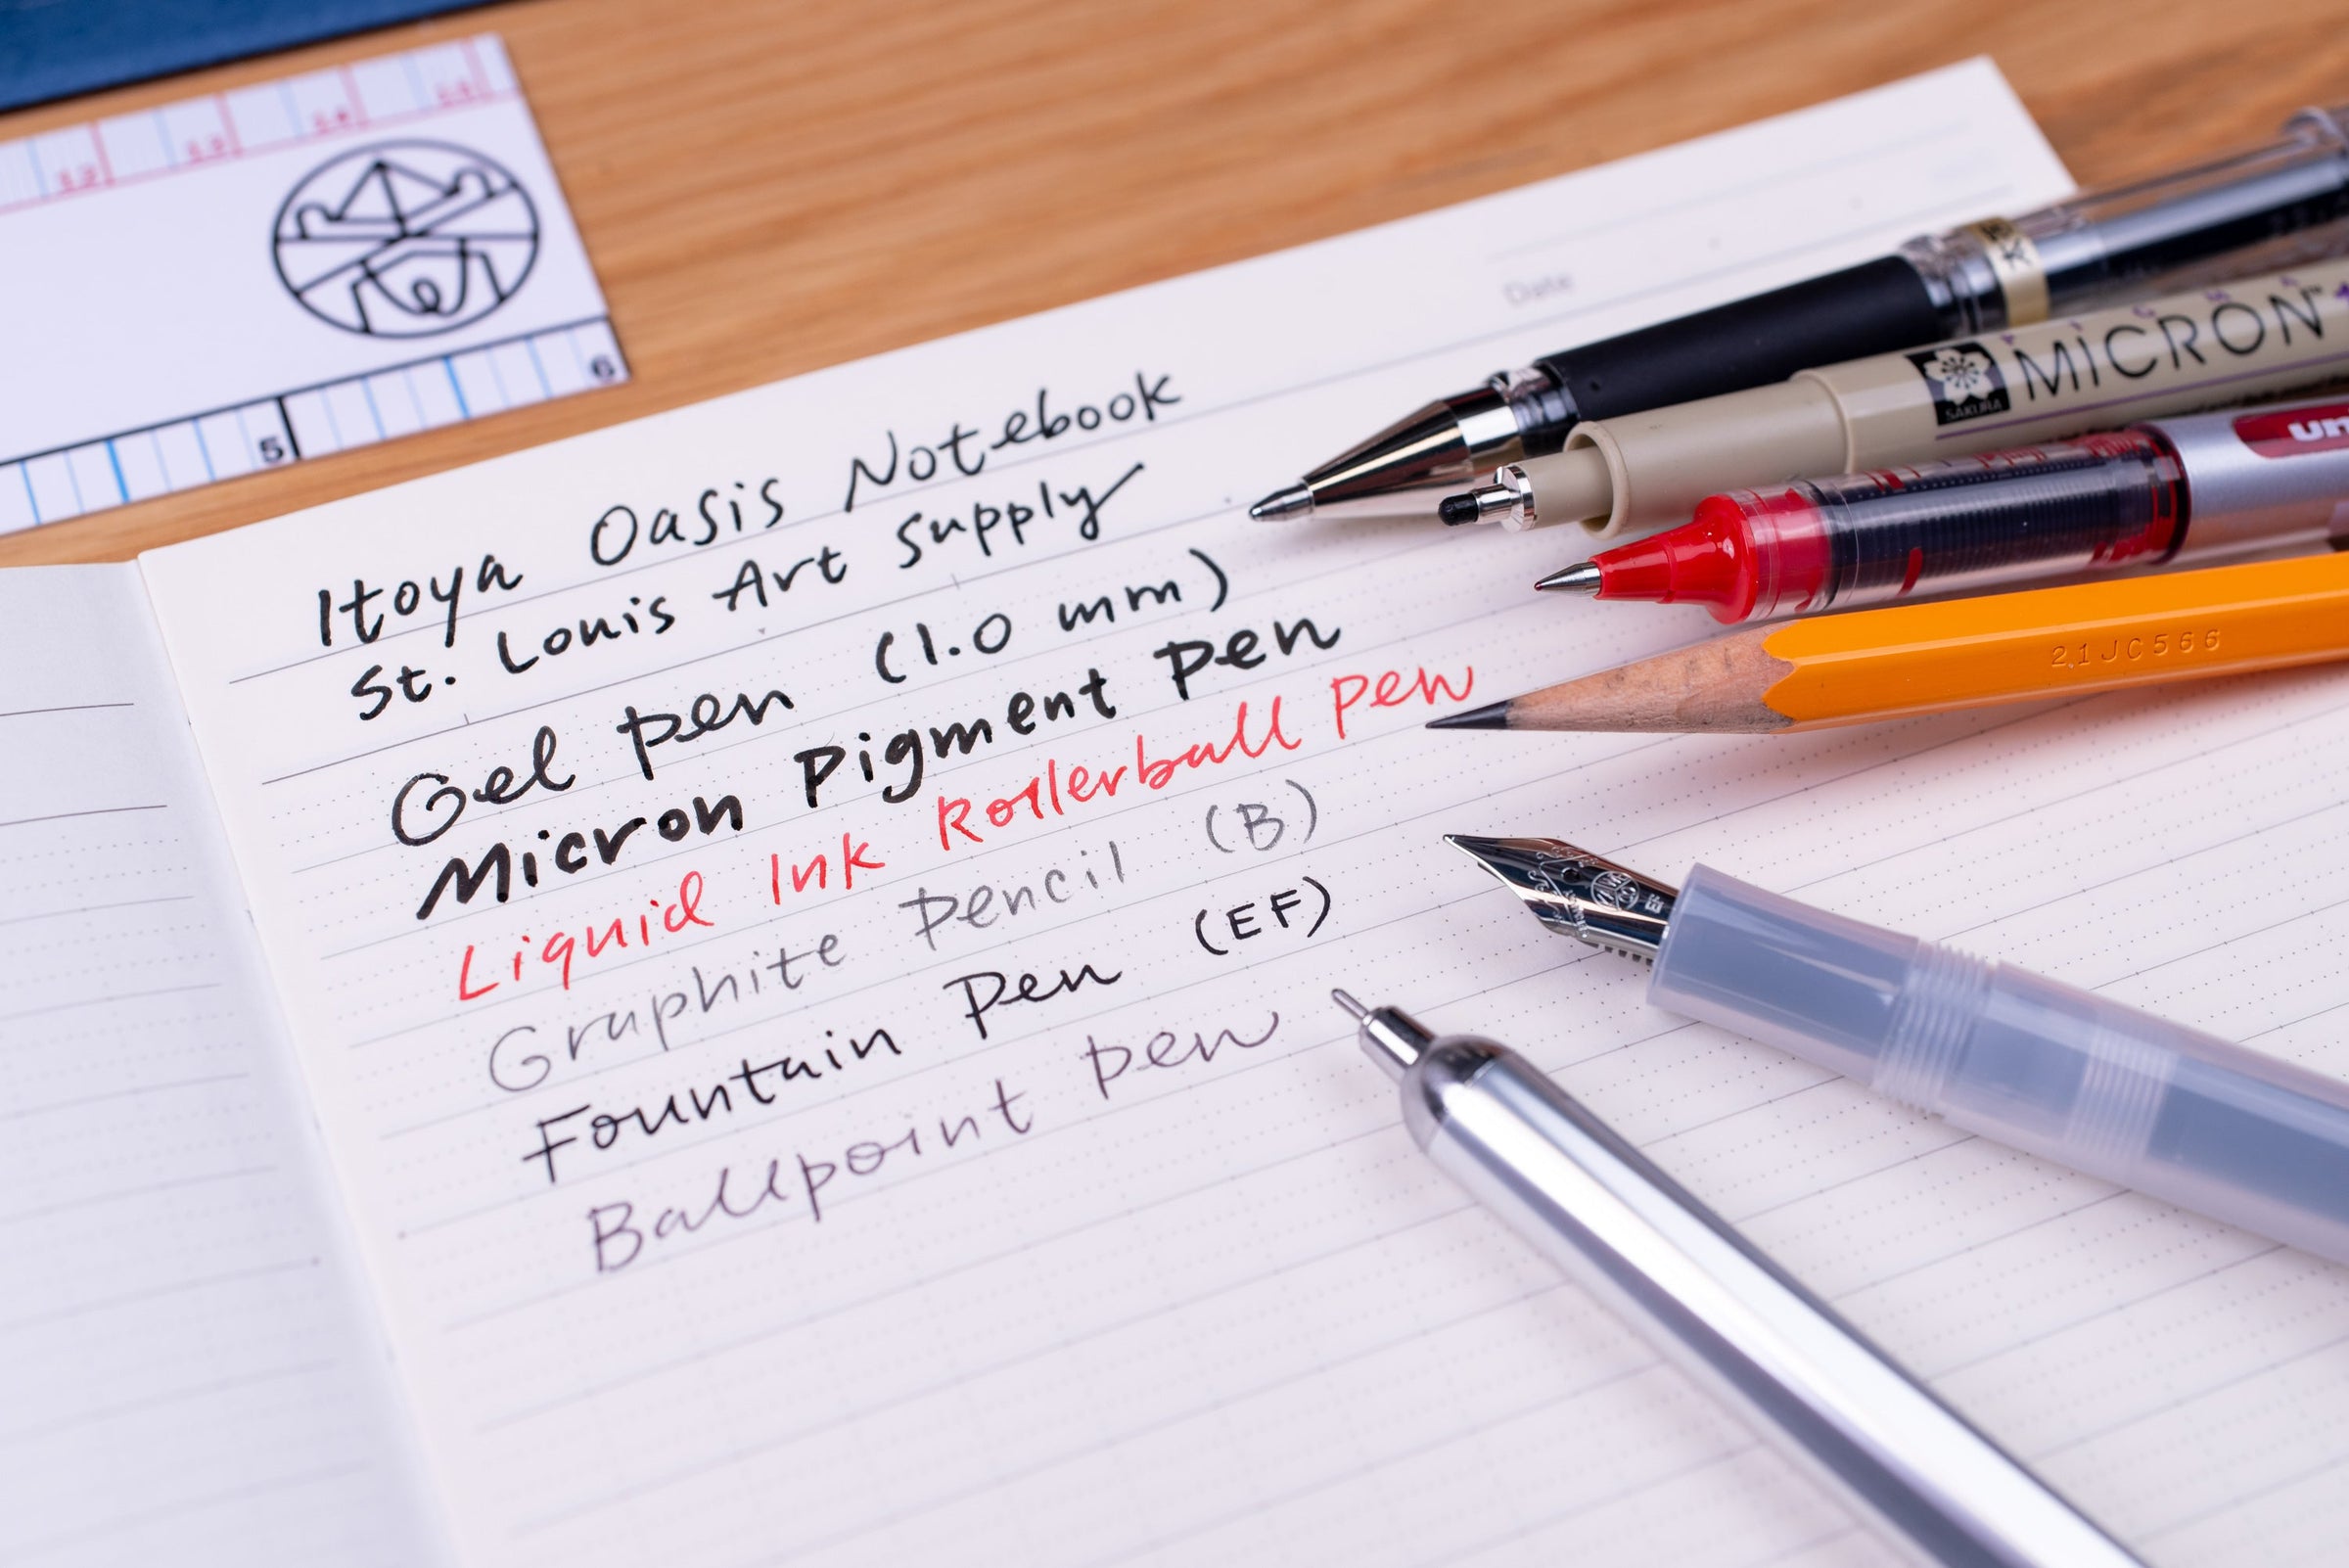 12
13
14
15
5
6
Date
Itoya Oasis Notebook
St. Louis Art Supply
Gel pen (1.0 mm)
Micron Pigment Pen
Liquid Ink Rollerball pen
Graphite Pencil (B)
Fountain Pen (EF)
Ballpoint pen
SAKURA
MICRON
un
21JC566
EF